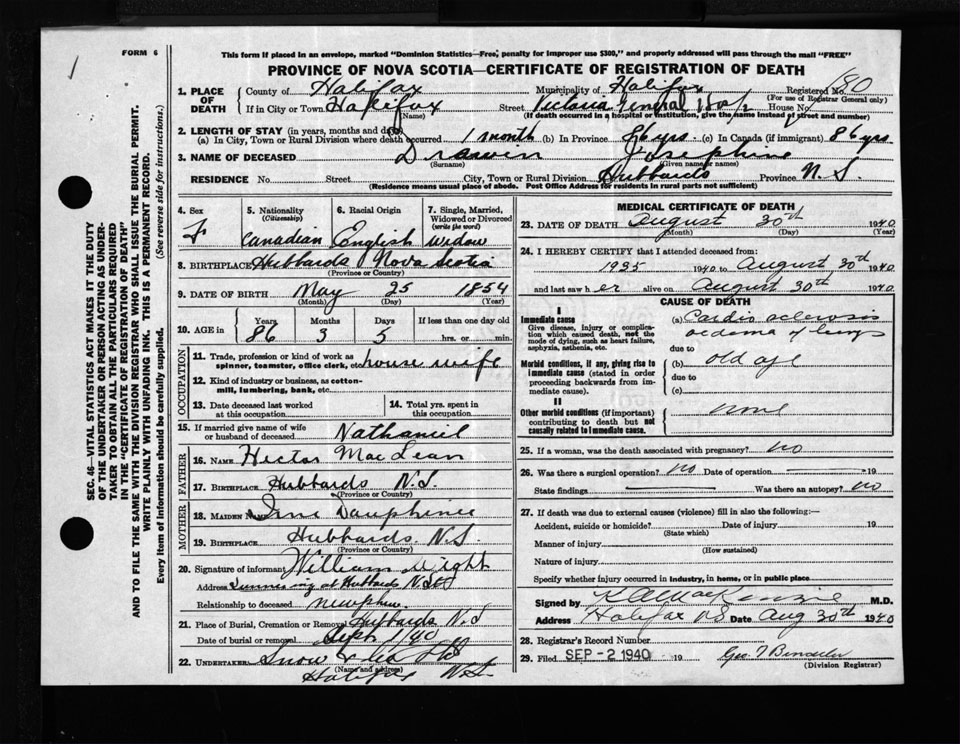 FORM 6
This form if placed in an envelope, marked "Dominion Statistics—Free, penalty for improper use $300," and properly addressed will pass through the mail "FREE"
PROVINCE OF NOVA SCOTIA—CERTIFICATE OF REGISTRATION OF DEATH
1. PLACE OF DEATH
County of Halifax Municipality of Halifax Registered No. 80
(For use of Registrar General only)
If in City or Town Halifax Street Victoria General Hosp House No.
(Name) (If death occurred in a hospital or institution, give the name instead of street and number)
2. LENGTH OF STAY (in years, months and days)
(a) In City, Town or Rural Division where death occurred 1 month (b) In Province 86 yrs. (c) In Canada (if immigrant) 86 yrs
3. NAME OF DECEASED Josephine
(Surname) (Given name or names)
RESIDENCE No. Street City, Town or Rural Division Hubbards Province N.S.
(Residence means usual place of abode. Post Office Address for residents in rural parts not sufficient)
4. Sex F
5. Nationality (Citizenship) Canadian
6. Racial Origin English
7. Single, Married, Widowed or Divorced (write the word) Widow
8. BIRTHPLACE Hubbards Nova Scotia
(Province or Country)
9. DATE OF BIRTH May 25 1854
(Month) (Day) (Year)
10. AGE in Years Months Days If less than one day old
86 3 5 hrs. or min.
OCCUPATION
11. Trade, profession or kind of work as spinner, teamster, office clerk, etc. house wife
12. Kind of industry or business, as cotton-mill, lumbering, bank, etc.
13. Date deceased last worked at this occupation
14. Total yrs. spent in this occupation
15. If married give name of wife or husband of deceased Nathaniel
FATHER
16. NAME Hector MacLean
17. BIRTHPLACE Hubbards N.S.
(Province or Country)
MOTHER
18. MAIDEN NAME Dauphinee
19. BIRTHPLACE Hubbards N.S.
(Province or Country)
20. Signature of informant William
Address at Hubbards N.S.
Relationship to deceased newphew
21. Place of Burial, Cremation or Removal Hubbards N.S
Date of burial or removal Sept 1/40
22. UNDERTAKER Snow
(Name and address)
Halifax N.S.
MEDICAL CERTIFICATE OF DEATH
23. DATE OF DEATH August 30th 1940
(Month) (Day) (Year)
24. I HEREBY CERTIFY that I attended deceased from:
1935 1940 to August 30th 1940
and last saw her alive on August 30th 1940
CAUSE OF DEATH
I
Immediate cause
Give disease, injury or complication which caused death, not the mode of dying, such as heart failure, asphyxia, asthenia, etc.
(a) Cardio sclerosis
oedema of lungs
due to
Morbid conditions, if any, giving rise to immediate cause (stated in order proceeding backwards from immediate cause)
(b) old age
due to
(c)
II
Other morbid conditions (if important) contributing to death but not causally related to immediate cause.
none
25. If a woman, was the death associated with pregnancy? no
26. Was there a surgical operation? no Date of operation 19
State findings Was there an autopsy? no
27. If death was due to external causes (violence) fill in also the following:—
Accident, suicide or homicide? Date of injury 19
(State which)
Manner of injury
(How sustained)
Nature of injury
Specify whether injury occurred in industry, in home, or in public place
Signed by MacKenzie M.D.
Address Halifax N.S. Date Aug 30th 1940
28. Registrar's Record Number
29. Filed SEP - 2 1940 19
(Division Registrar)
SEC. 46—VITAL STATISTICS ACT MAKES IT THE DUTY
OF THE UNDERTAKER OR PERSON ACTING AS UNDERTAKER
TO OBTAIN ALL THE PARTICULARS REQUIRED
IN THE "CERTIFICATE OF REGISTRATION OF DEATH"
AND TO FILE THE SAME WITH THE DIVISION REGISTRAR WHO SHALL ISSUE THE BURIAL PERMIT.
WRITE PLAINLY WITH UNFADING INK. THIS IS A PERMANENT RECORD.
Every item of information should be carefully supplied. (See reverse side for instructions.)